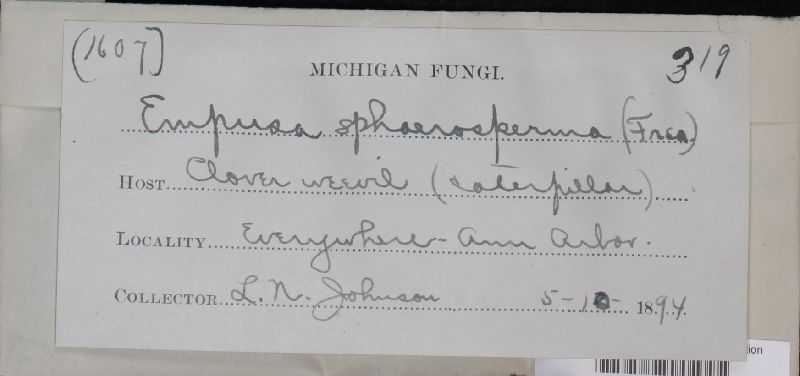 (1607] 319
MICHIGAN FUNGI.
Empusa sphaerosperma (Fres)
HOST Clover weevil (caterpillar)
LOCALITY Everywhere - Ann Arbor.
COLLECTOR L. N. Johnson 5-10- 1894.
tion